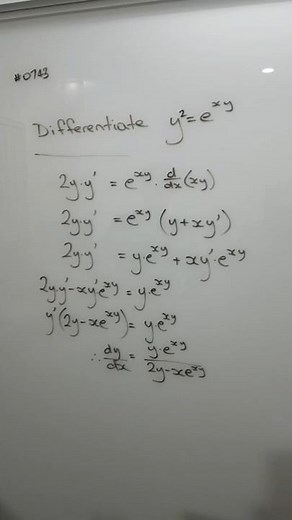 #0743
Differentiate y²=e^xy
2y·y' = e^xy · d/dx (xy)
2y·y' = e^xy (y+xy')
2y·y' = y·e^xy + xy'·e^xy
2y·y'-xy'e^xy = y·e^xy
y'(2y-xe^xy) = y·e^xy
∴ dy/dx = y·e^xy / 2y-xe^xy